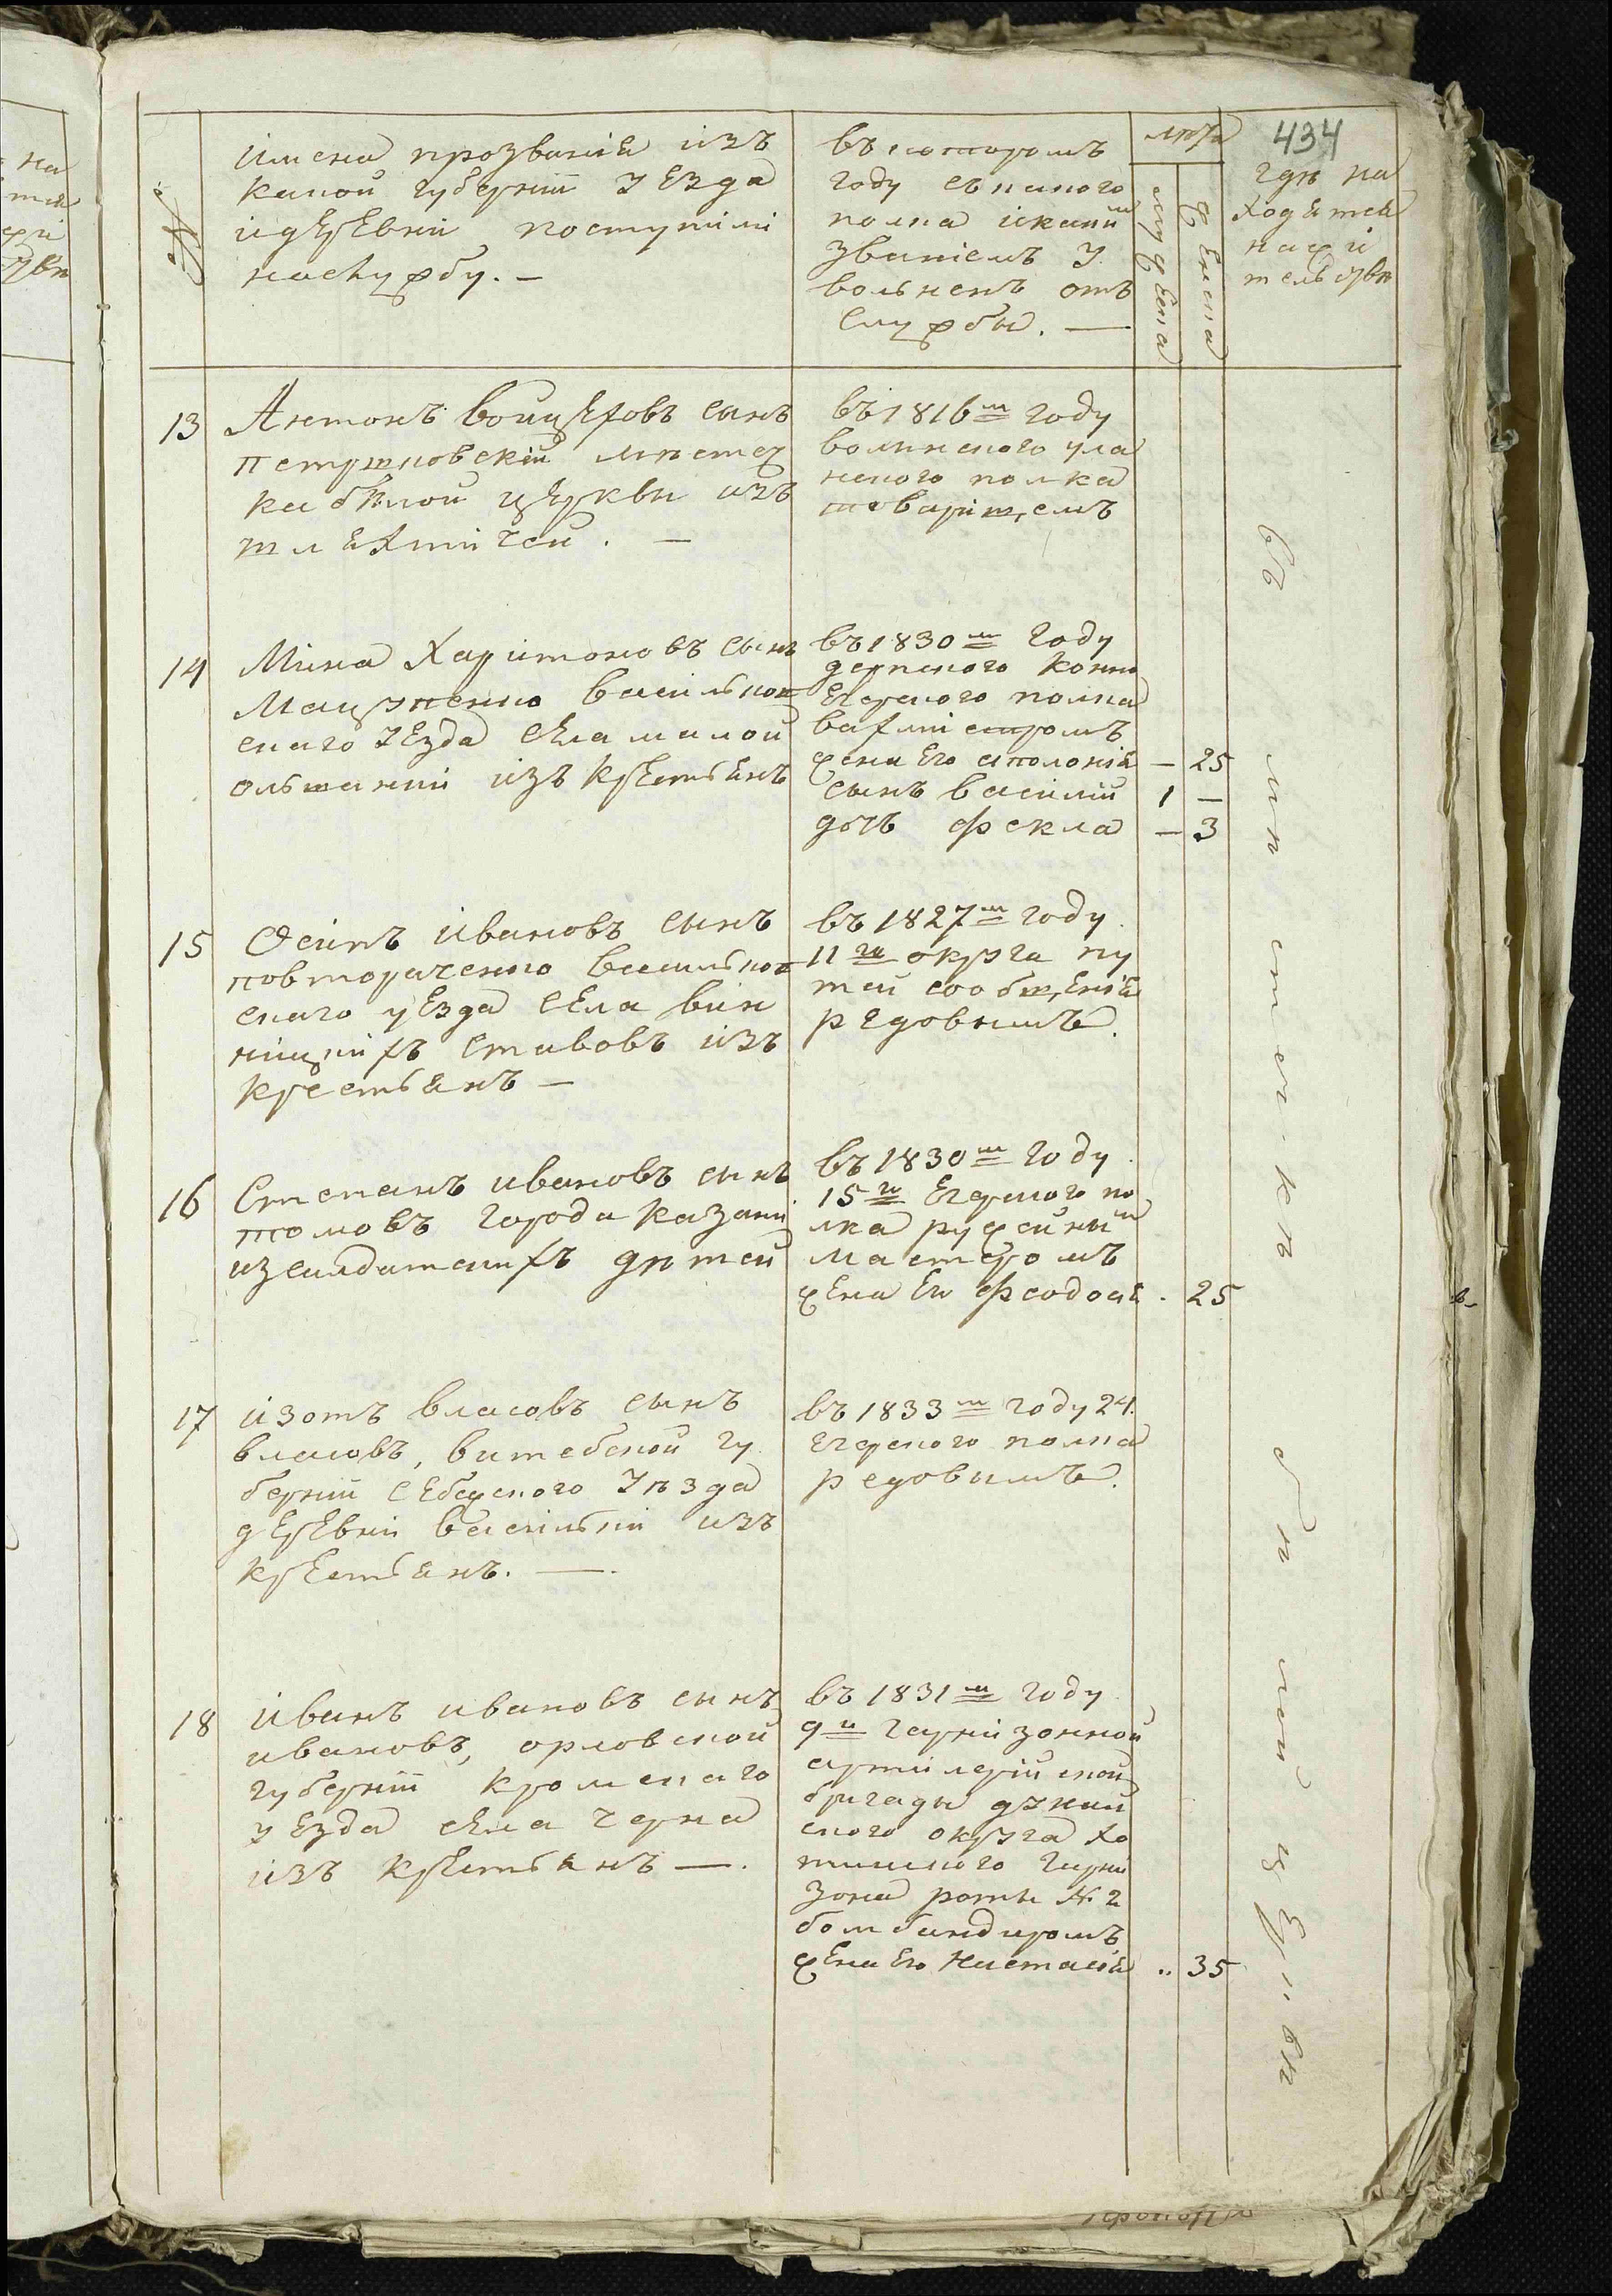 434
№
имена прозвания изъ
какой губернiи уезда
и деревни поступили
наслужбу. —
въ которомъ
году съ какого
полка и каким
званiемъ у
воленъ отъ
службы. —
лѣта
муж еска
женска
гдѣ на
ходятся
на жи
тельствѣ
13
Антонъ войцеховъ сынъ
петушковский мѣстеч
ка бѣлой церкви изъ
шляхтичей. —
въ 1816м году
волынского ула
нского полка
товарищемъ
14
Мина Харитоновъ сынъ
Мацуненко васильков
скаго уезда села малой
ольшанки изъ крестьянъ
въ 1830м году
дерпского конно
Егерского полка
вахмистромъ
жена его аполония — 25
сынъ василий 1 —
дочь фекла — 3
15
Осипъ ивановъ сынъ
повтораченко васильков
скаго уезда села вин
ницкихъ ставовъ изъ
крестьянъ —
въ 1827м году
11го округа пу
тей сообщения
редовымъ.
16
Степанъ ивановъ сынъ
томовъ города казани
изсолдатскихъ дѣтей
въ 1830м году
15го Егерского по
лка ружейным
мастеромъ
жена Его Феодосия . 25
17
изотъ власовъ сынъ
власовъ, витебской гу
бернiи себежского уѣзда
деревни васильки изъ
крестьянъ. —
въ 1833м году 24.
Егерского полка
редовымъ.
18
иванъ ивановъ сынъ
ивановъ, орловской
губернiи кромскаго
уезда села черна
изъ крестьянъ —.
въ 1831м году
9й гарнизонной
артилерийской
бригады дунай
ского округа хо
тинского гарни
зона роты №2
бомбандиромъ
жена Его Настасия .. 35
въ мѣстечкѣ бѣлой церквѣ